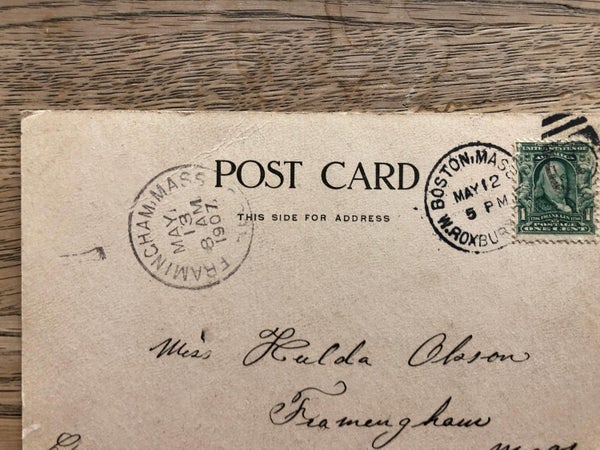 POST CARD
THIS SIDE FOR ADDRESS
FRAMINGHAM, MASS.
MAY
13
8 AM
1907
BOSTON, MASS
MAY 12
5 PM
W. ROXBUR
UNITED STATES OF
AMERICA
FRANKLIN
1 POSTAGE 1
ONE CENT
Miss Hulda Olsson
Framengham
Mass